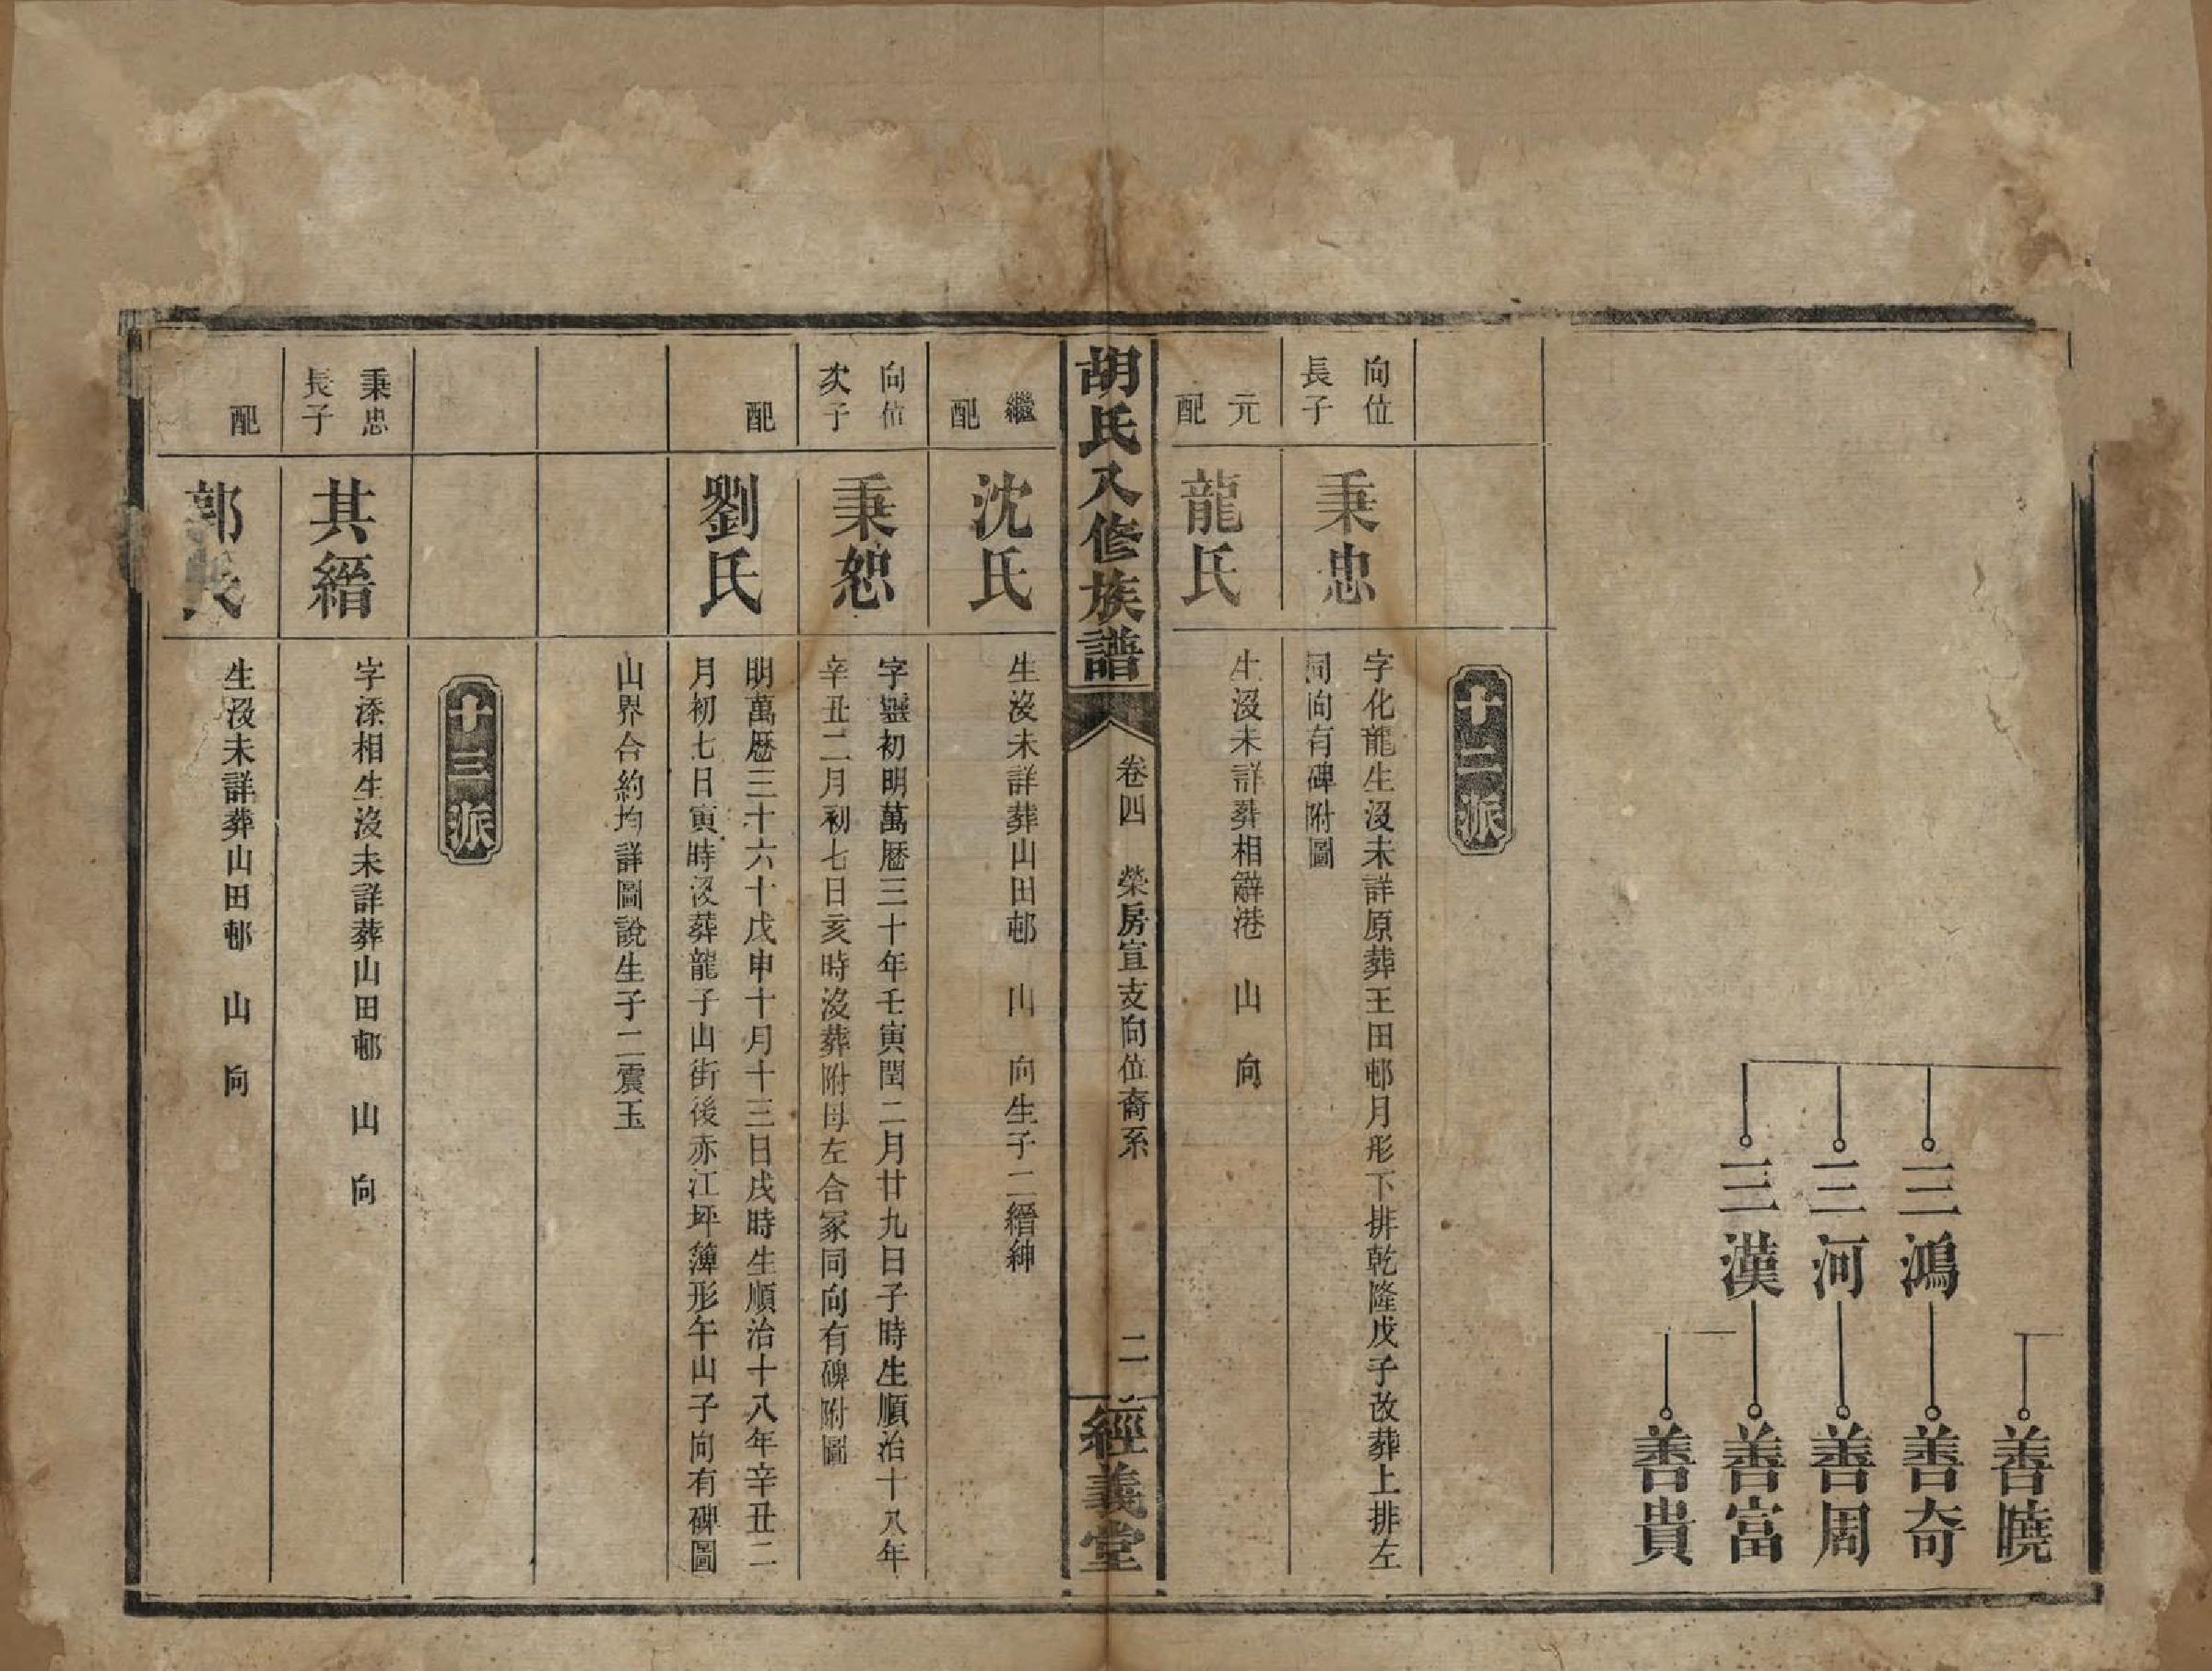 善曉
三鴻 善奇
三河 善周
三漢 善富
善貴
十二派
向位
長子
秉忠
字化龍生沒未詳原葬王田邨月形下排乾隆戊子改葬上排左
同向有碑附圖
元
配
龍氏
生沒未詳葬相辭港 山 向
胡氏八修族譜
卷四 榮房宣支向位裔系
二
經義堂
繼
配
沈氏
生沒未詳葬山田邨 山 向生子二縉紳
向位
次子
秉恕
字靈初明萬歷三十年壬寅閏二月廿九日子時生順治十八年
辛丑二月初七日亥時沒葬附母左合冢同向有碑附圖
配
劉氏
明萬歷三十六十戊申十月十三日戌時生順治十八年辛丑二
月初七日寅時沒葬龍子山街後赤江坪簿形午山子向有碑圖
山界合約均詳圖說生子二震玉
十三派
秉忠
長子
其縉
字添相生沒未詳葬山田邨 山 向
配
郭氏
生沒未詳葬山田邨 山 向